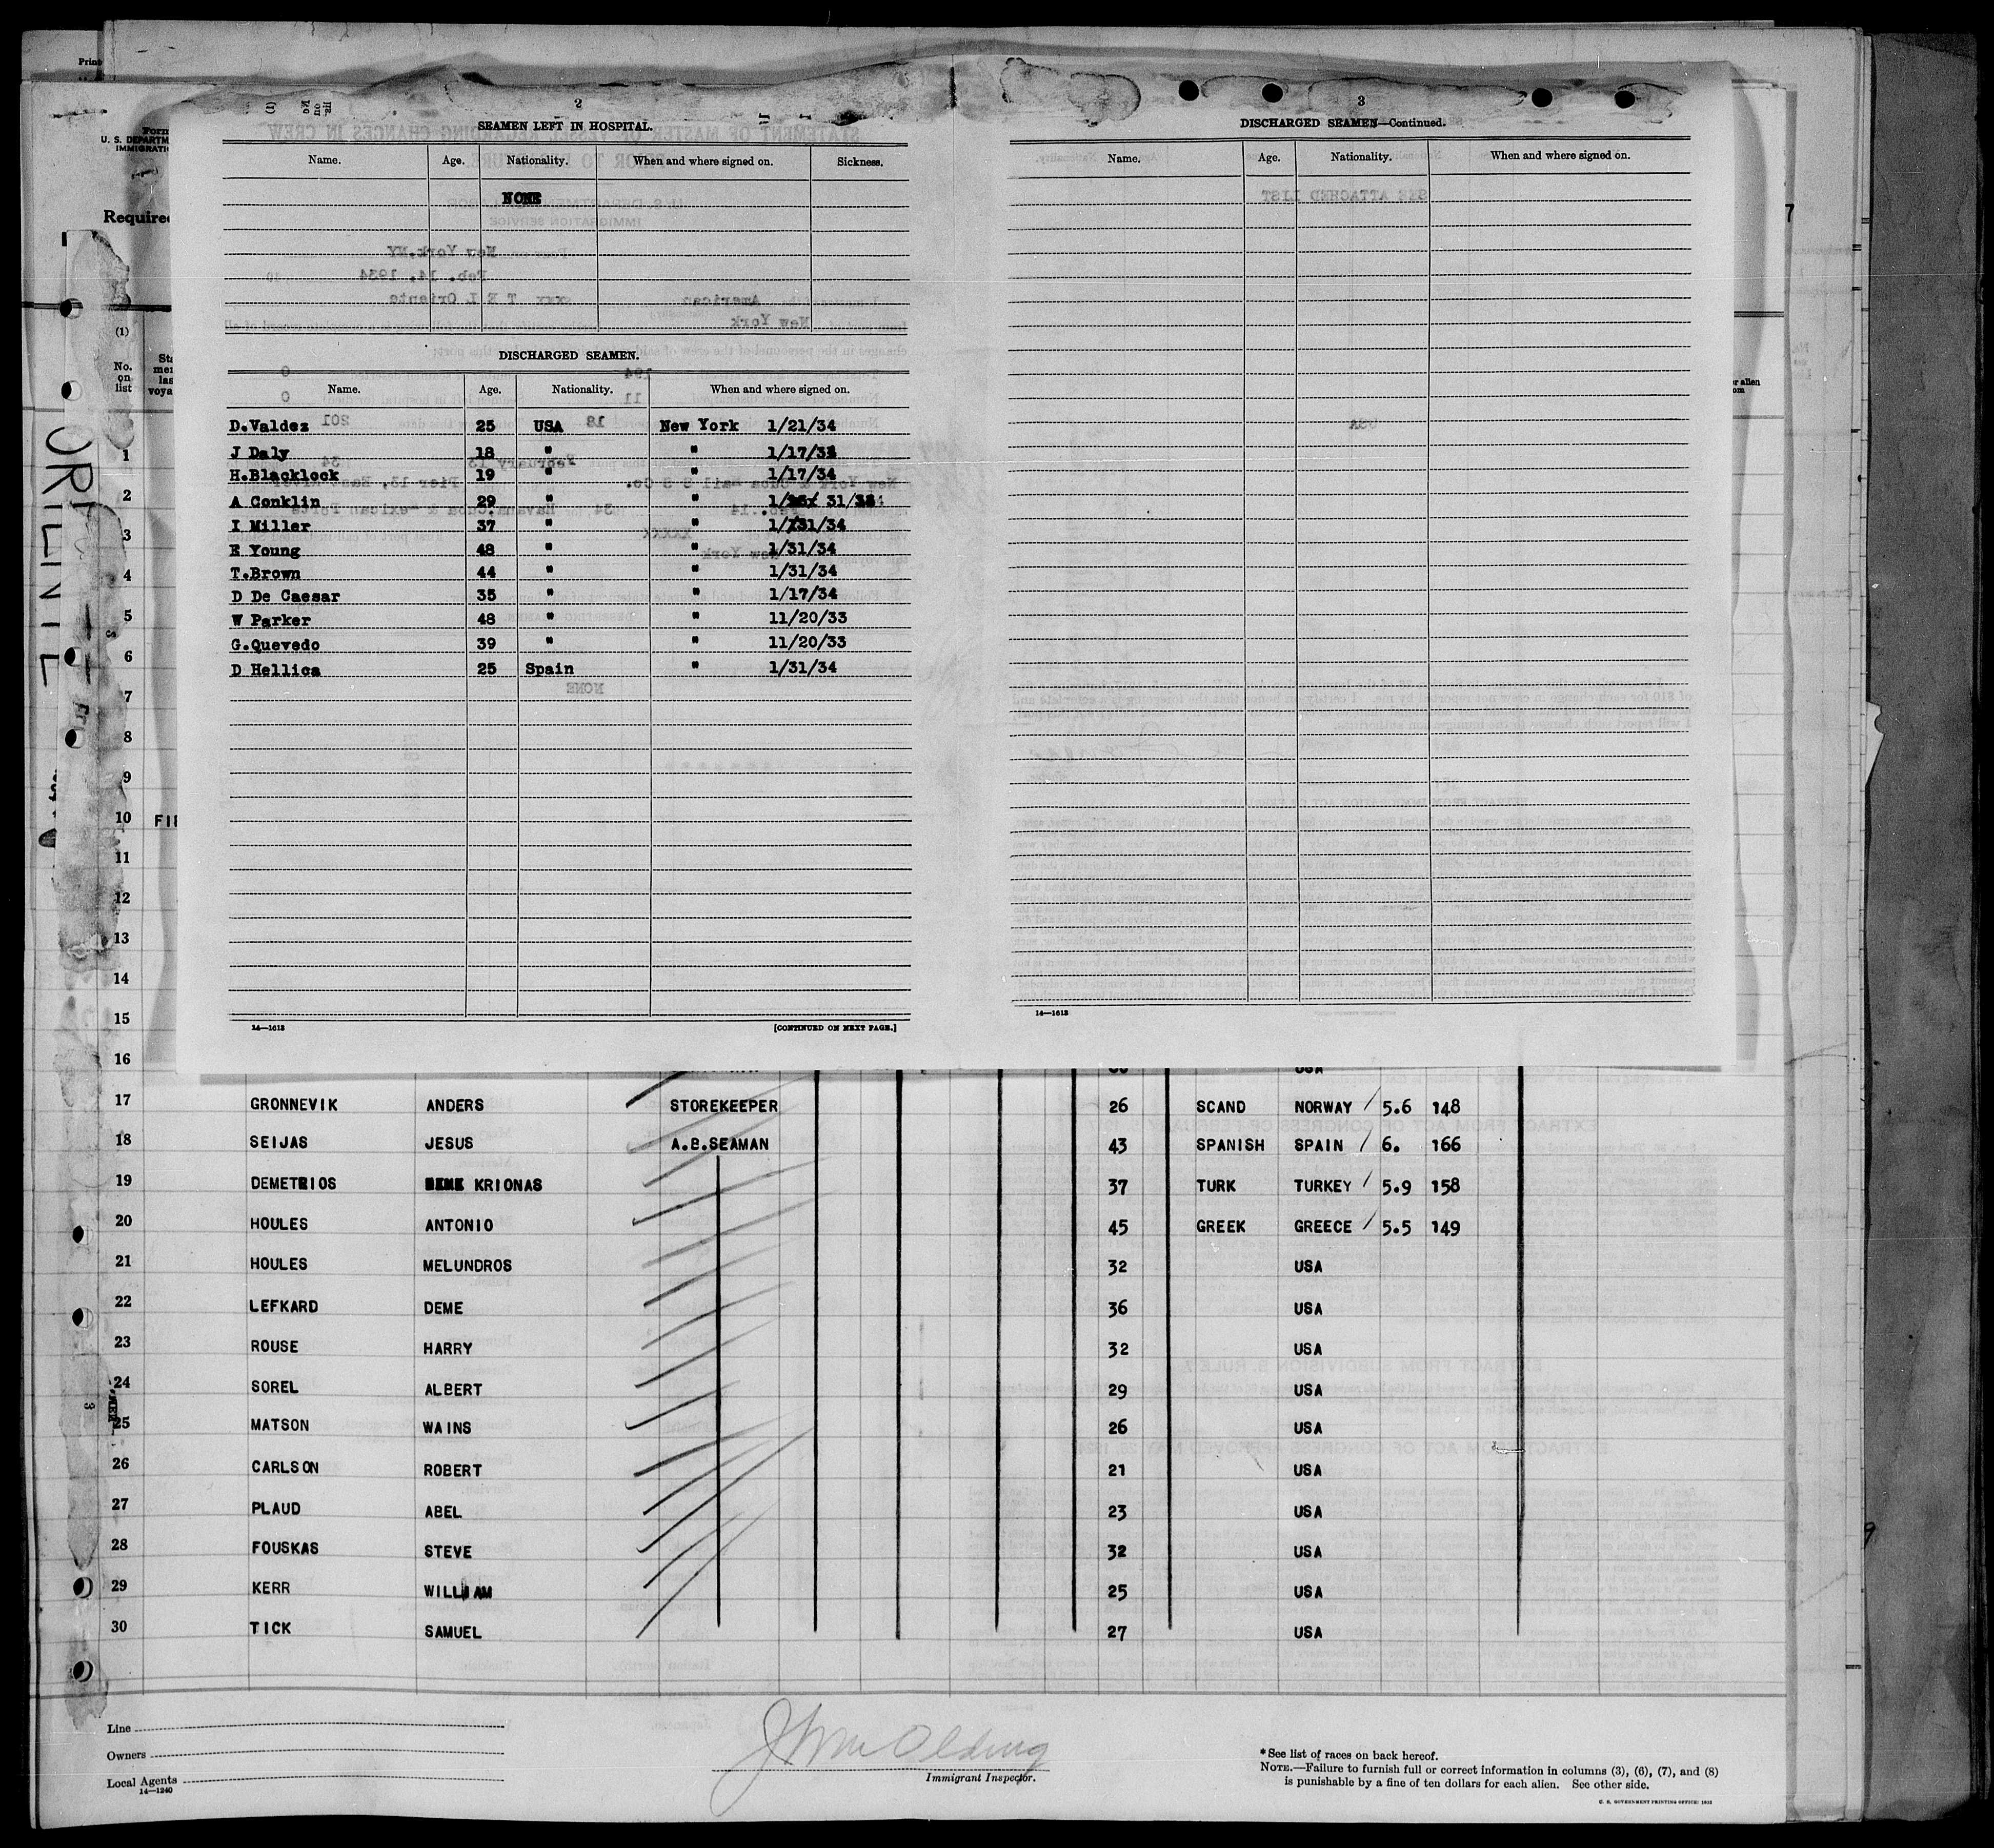 Print
Form
U. S. DEPARTM
IMMIGRATI
Required
(1)
No.
on
list
2
SEAMEN LEFT IN HOSPITAL.
Name. Age. Nationality. When and where signed on. Sickness.
NONE
DISCHARGED SEAMEN.
Name. Age. Nationality. When and where signed on.
D.Valdez 25 USA New York 1/21/34
J Daly 18 " " 1/17/34
H.Blacklock 19 " " 1/17/34
A Conklin 29 " " 1/ 31/34
I Miller 37 " " 1/31/34
E Young 48 " " 1/31/34
T.Brown 44 " " 1/31/34
D De Caesar 35 " " 1/17/34
W Parker 48 " " 11/20/33
G.Quevedo 39 " " 11/20/33
D Hellica 25 Spain " 1/31/34
14—1613 [CONTINUED ON NEXT PAGE.]
3
DISCHARGED SEAMEN—Continued.
Name. Age. Nationality. When and where signed on.
14—1613
1
2
3
4
5
6
7
8
9
10
11
12
13
14
15
16 USA
17 GRONNEVIK ANDERS STOREKEEPER 26 SCAND NORWAY / 5.6 148
18 SEIJAS JESUS A.B.SEAMAN 43 SPANISH SPAIN / 6. 166
19 DEMETRIOS KRIONAS 37 TURK TURKEY / 5.9 158
20 HOULES ANTONIO 45 GREEK GREECE / 5.5 149
21 HOULES MELUNDROS 32 USA
22 LEFKARD DEME 36 USA
23 ROUSE HARRY 32 USA
24 SOREL ALBERT 29 USA
25 MATSON WAINS 26 USA
26 CARLSON ROBERT 21 USA
27 PLAUD ABEL 23 USA
28 FOUSKAS STEVE 32 USA
29 KERR WILLIAM 25 USA
30 TICK SAMUEL 27 USA
Line
Owners
Local Agents
14—1240
Immigrant Inspector.
*See list of races on back hereof.
NOTE.—Failure to furnish full or correct information in columns (3), (6), (7), and (8)
is punishable by a fine of ten dollars for each alien. See other side.
U. S. GOVERNMENT PRINTING OFFICE: 1932